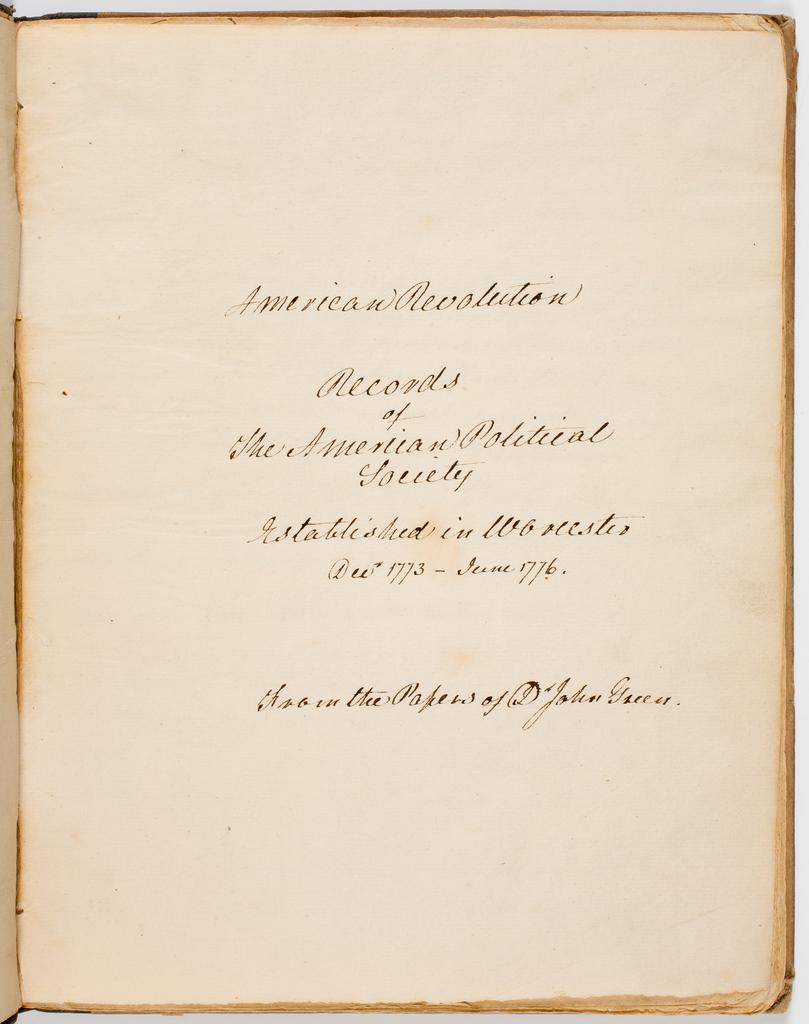 American Revolution
Records
of
The American Political
Society
Established in Worcester
Decr 1773 - June 1776.
From the Papers of Dr John Green.